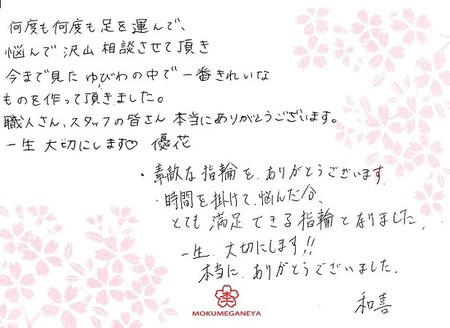 何度も何度も足を運んで、
悩んで沢山相談させて頂き
今まで見たゆびわの中で一番きれいな
ものを作って頂きました。
職人さん、スタッフの皆さん本当にありがとうございます。
一生大切にします♡ 優花
・素敵な指輪を、ありがとうございます
・時間を掛けて、悩んだ分、
とても満足できる指輪となりました。
一生、大切にします!!
本当に、ありがとうございました。
和喜
MOKUMEGANEYA